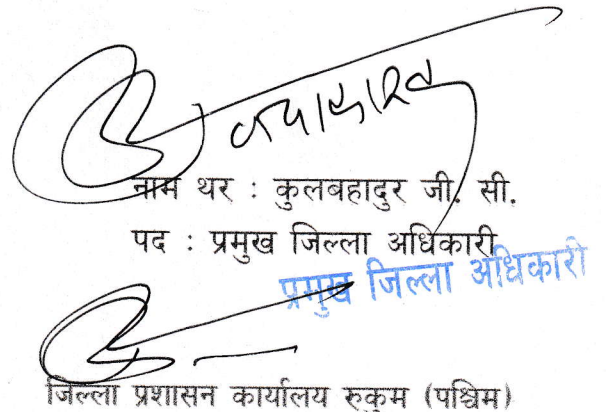 नाम थर : कुलबहादुर जी. सी.
पद : प्रमुख जिल्ला अधिकारी
प्रमुख जिल्ला अधिकारी
जिल्ला प्रशासन कार्यालय रुकुम (पश्चिम)